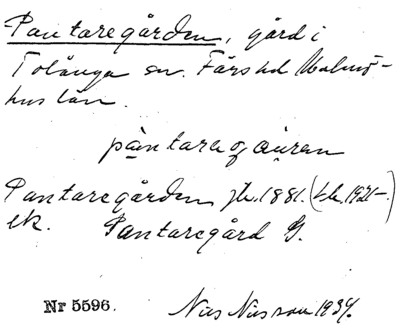 Pantaregården, gård i
Tolånga sn. Färs hd Malmö-
hus län.
pàntaregåuren
Pantaregården jb. 1881. 1921-.
ek. Pantaregård G.
Nr 5596. Nils Nilsson 1934.